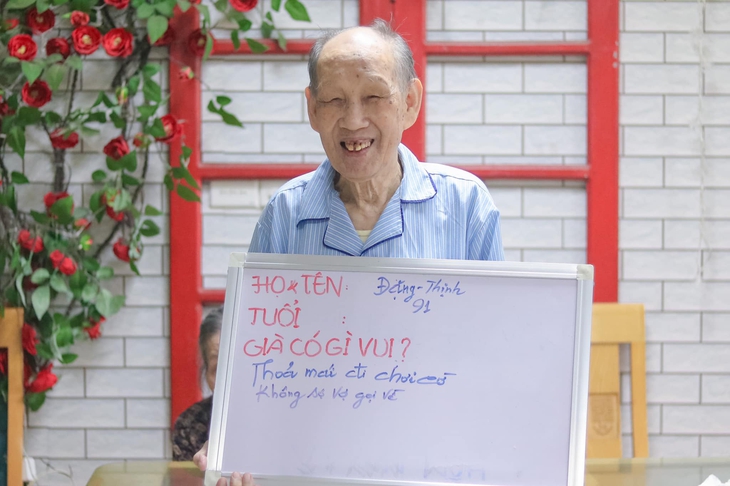 HỌ & TÊN: Đặng-Thịnh
TUỔI : 91
GIÀ CÓ GÌ VUI?
Thoải mái đi chơi cờ
Không sợ vợ gọi về